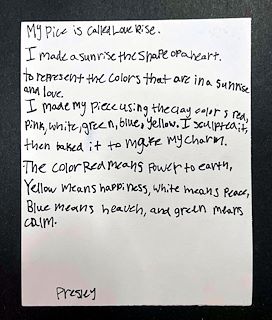 My Pice is called Love Rise.
I made a sunrise the shape of a heart.
to represent the colors that are in a sunrise
and love.
I made my piece using the clay color s red,
pink, white, green, blue, yellow. I sculpted it,
then baked it to make my charm.
The color Red means Power to earth,
Yellow means happiness, white means Peace,
Blue means heaven, and green means
calm.
Presley